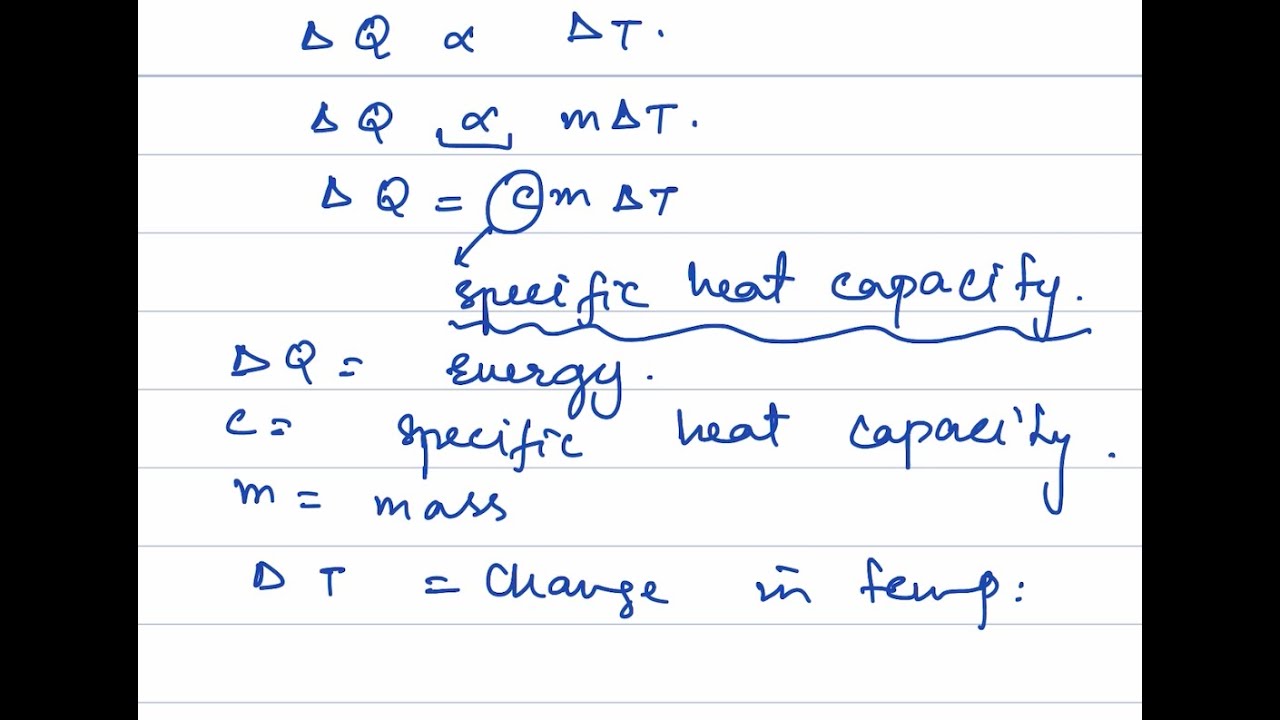 Δ Q ∝ ΔT.
Δ Q ∝ mΔT.
Δ Q = c m ΔT
specific heat capacity.
ΔQ = Energy.
c = specific heat capacity.
m = mass
Δ T = Change in temp: